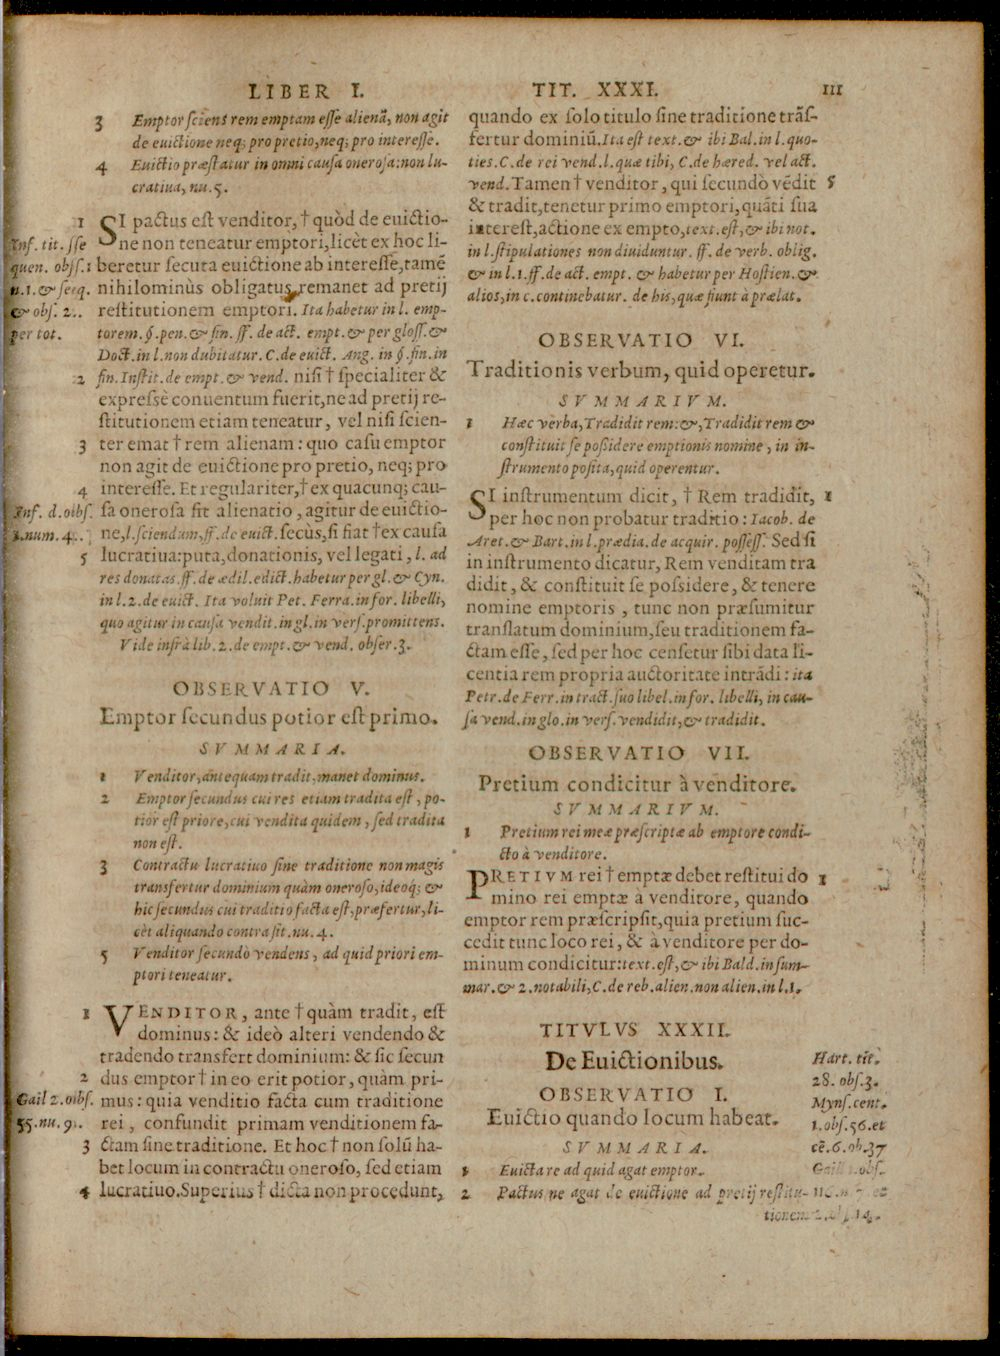 LIBER I. TIT. XXXI. 111
3 Emptor sciens rem emptam esse alienã, non agit
de euictione neq; pro pretio, neq; pro interesse.
4 Euictio præstatur in omni causa onerosa: non lu-
cratiua, nu. 5.
1 SI pactus est venditor, † quòd de euictio-
Inf. tit. sse
ne non teneatur emptori, licèt ex hoc li-
quen. obs. 1
beretur secuta euictione ab interesse, tamẽ
n. 1. & seq.
nihilominùs obligatus remanet ad pretij
& obs. 2.
restitutionem emptori. Ita habetur in l. emp-
per tot.
torem. §. pen. & fin. ff. de act. empt. & per gloss. &
Doct. in l. non dubitatur. C. de euict. Ang. in §. fin. in
2 fin. Instit. de empt. & vend. nisi † specialiter &
expressè conuentum fuerit, ne ad pretij re-
stitutionem etiam teneatur, vel nisi scien-
3 ter emat † rem alienam: quo casu emptor
non agit de euictione pro pretio, neq; pro
4 interesse. Et regulariter, † ex quacunq; cau-
Inf. d. oibs.
sa onerosa fit alienatio, agitur de euictio-
1. num. 4.
ne, l. sciendum, ff. de euict. secus, si fiat † ex causa
5 lucratiua: puta, donationis, vel legati, l. ad
res donatas. ff. de ædil. edict. habetur per gl. & Cyn.
in l. 2. de euict. Ita voluit Pet. Ferra. in for. libelli,
quo agitur in causa vendit. in gl. in vers. promittens.
Vide infrà lib. 2. de empt. & vend. obser. 3.
OBSERVATIO V.
Emptor secundus potior est primo.
SVMMARIA.
1 Venditor, antequam tradit, manet dominus.
2 Emptor secundus cui res etiam tradita est, po-
tior est priore, cui vendita quidem, sed tradita
non est.
3 Contractu lucratiuo sine traditione non magis
transfertur dominium quàm oneroso, ideoq; &
hic secundus cui traditio facta est, præfertur, li-
cèt aliquando contra sit. nu. 4.
5 Venditor secundò vendens, ad quid priori em-
ptori teneatur.
1 VENDITOR, ante † quàm tradit, est
dominus: & ideò alteri vendendo &
tradendo transfert dominium: & sic secun
2 dus emptor † in eo erit potior, quàm pri-
Gail 2. oibs.
mus: quia venditio facta cum traditione
55. nu. 9.
rei, confundit primam venditionem fa-
3 ctam sine traditione. Et hoc † non solũ ha-
bet locum in contractu oneroso, sed etiam
4 lucratiuo. Superius † dicta non procedunt,
quando ex solo titulo sine traditione trãs-
fertur dominiũ. Ita est text. & ibi Bal. in l. quo-
ties. C. de rei vend. l. quæ tibi, C. de hæred. vel act.
vend. Tamen † venditor, qui secundò vẽdit 5
& tradit, tenetur primo emptori, quãti sua
interest, actione ex empto, text. est, & ibi not.
in l. stipulationes non diuiduntur. ff. de verb. oblig.
& in l. 1. ff. de act. empt. & habetur per Hostien. &
alios, in c. continebatur. de his, quæ fiunt à prælat.
OBSERVATIO VI.
Traditionis verbum, quid operetur.
SVMMARIVM.
1 Hæc verba, Tradidit rem: &, Tradidit rem &
constituit se possidere emptionis nomine, in in-
strumento posita, quid operentur.
SI instrumentum dicit, † Rem tradidit, 1
per hoc non probatur traditio: Iacob. de
Aret. & Bart. in l. prædia. de acquir. possess. Sed si
in instrumento dicatur, Rem venditam tra
didit, & constituit se possidere, & tenere
nomine emptoris, tunc non præsumitur
translatum dominium, seu traditionem fa-
ctam esse, sed per hoc censetur sibi data li-
centia rem propria auctoritate intrãdi: ita
Petr. de Ferr. in tract. suo libel. in for. libelli, in cau-
sa vend. in glo. in vers. vendidit, & tradidit.
OBSERVATIO VII.
Pretium condicitur à venditore.
SVMMARIVM.
1 Pretium rei meæ præscriptæ ab emptore condi-
cto à venditore.
PRETIVM rei † emptæ debet restitui do 1
mino rei emptæ à venditore, quando
emptor rem præscripsit, quia pretium suc-
cedit tunc loco rei, & à venditore per do-
minum condicitur: text. est, & ibi Bald. in sum-
mar. & 2. notabili, C. de reb. alien. non alien. in l. 1.
TITVLVS XXXII.
De Euictionibus.
OBSERVATIO I.
Euictio quando locum habeat.
SVMMARIA.
1 Euicta re ad quid agat emptor.
2 Pactus ne agat de euictione ad pretij restitu-
tionem
Hart. tit.
28. obs. 3.
Myns. cent.
1. obs. 56. et
cẽ. 6. ob. 37
Gail 1. obs.
116. n. 7. et
2. obs. 14.